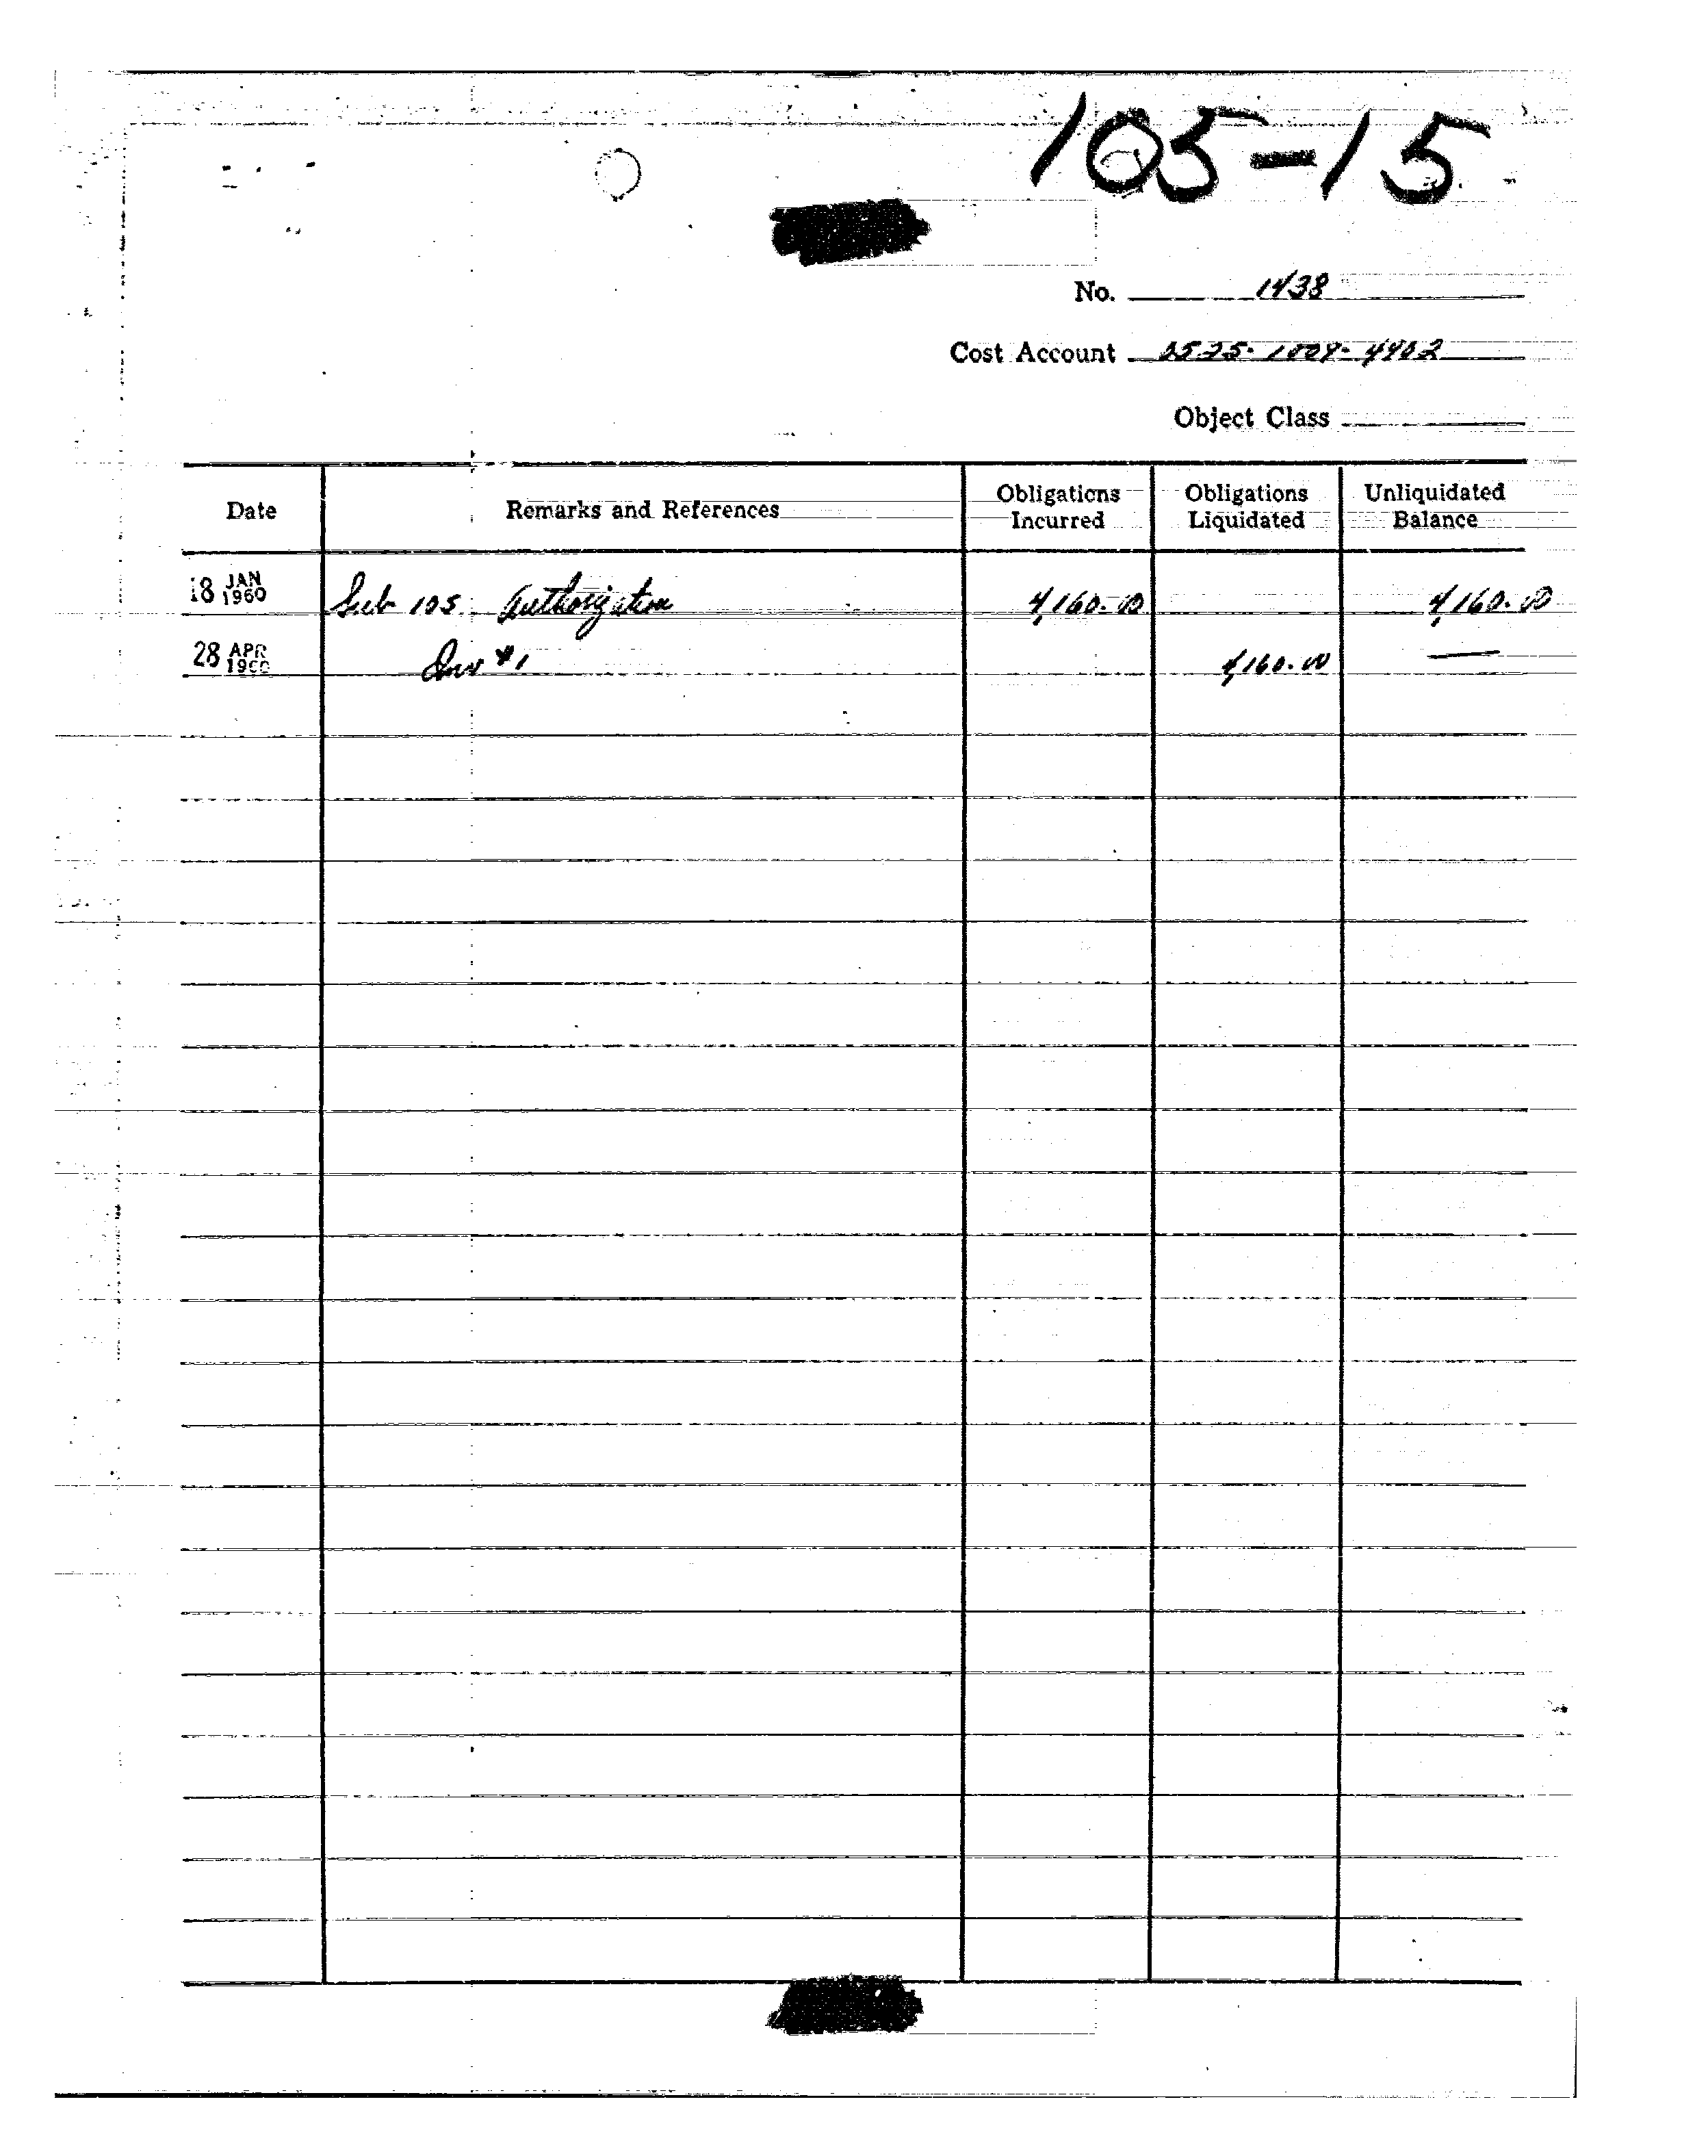 105-15
No. 1438
Cost Account 2525-1009-4902
Object Class
Date Remarks and References Obligations Incurred Obligations Liquidated Unliquidated Balance
18 JAN 1960 Sub 105 Authorization 4,160.00 4,160.00
28 APR 1960 Inv #1 4,160.00 —